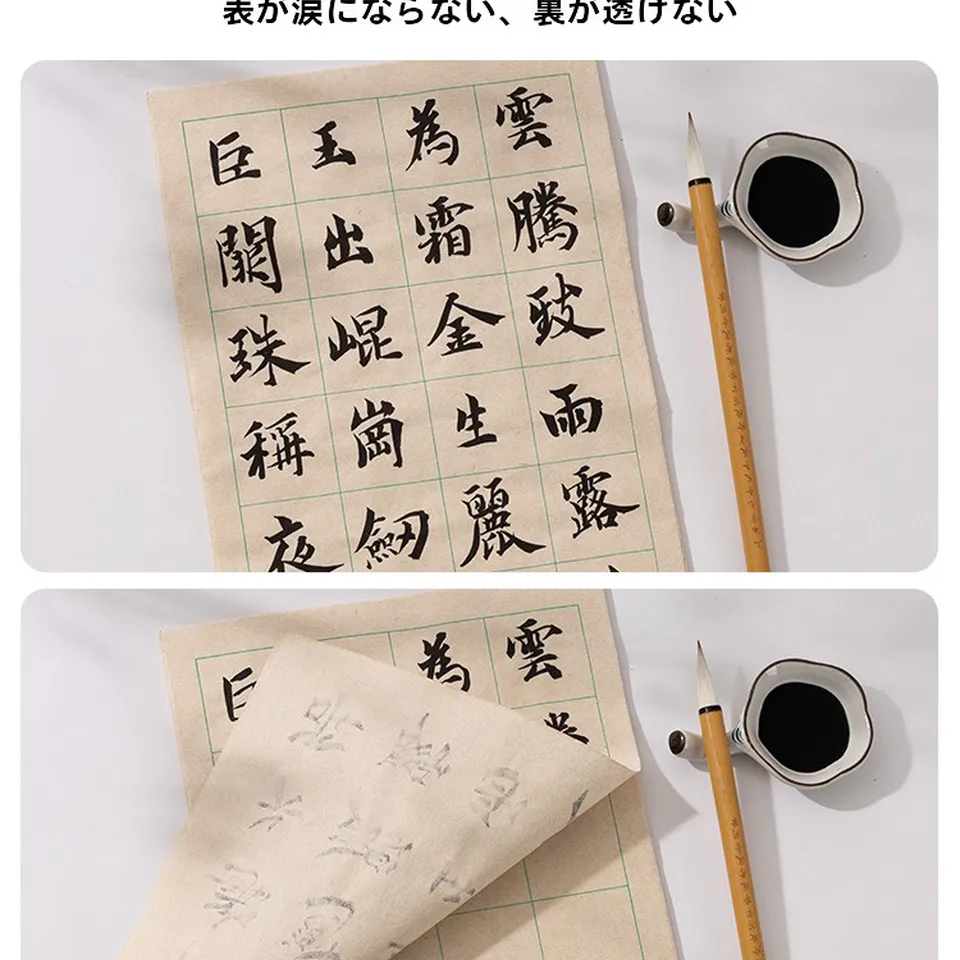 表が涙にならない、裏が透けない
雲騰致雨露
為霜金生麗
玉出崐崗劔
巨闕珠稱夜
雲
為
巨